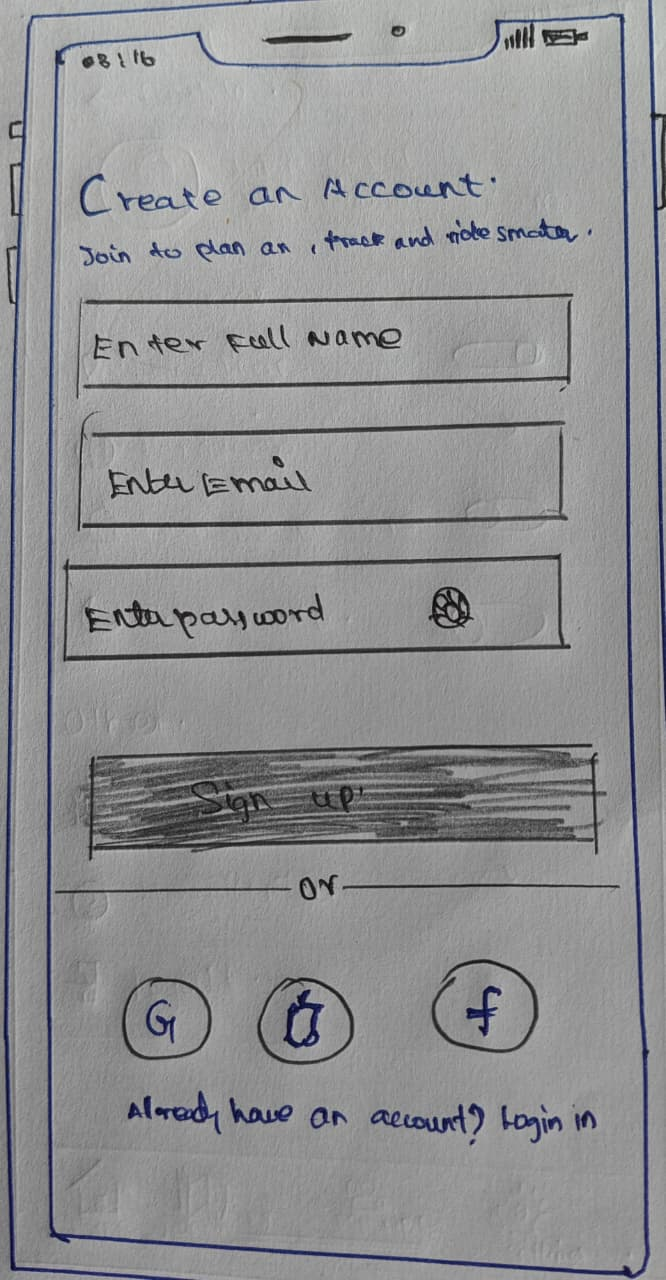 08:16
Create an Account.
Join to plan an, track and ride smater.
Enter Full Name
Enter Email
Enter password
Sign up
or
G f
Already have an account? Login in